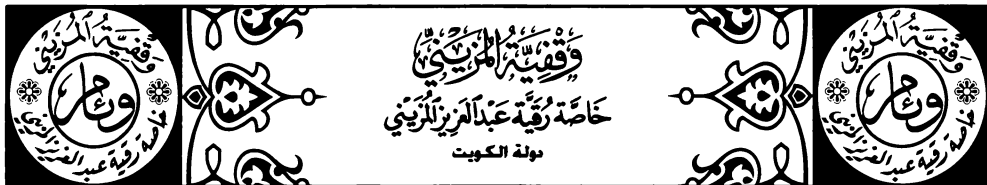 وَقْفِيَّةُ المُزَيْنِي
وئام
خاصة رقية عبد العزيز المزيني
وَقْفِيَّةُ المُزَيْنِيِّ
خَاصَّة رُقَيَّة عَبْدالعَزِيز المُزَيْنِي
دولة الكويت
وَقْفِيَّةُ المُزَيْنِي
وئام
خاصة رقية عبد العزيز المزيني